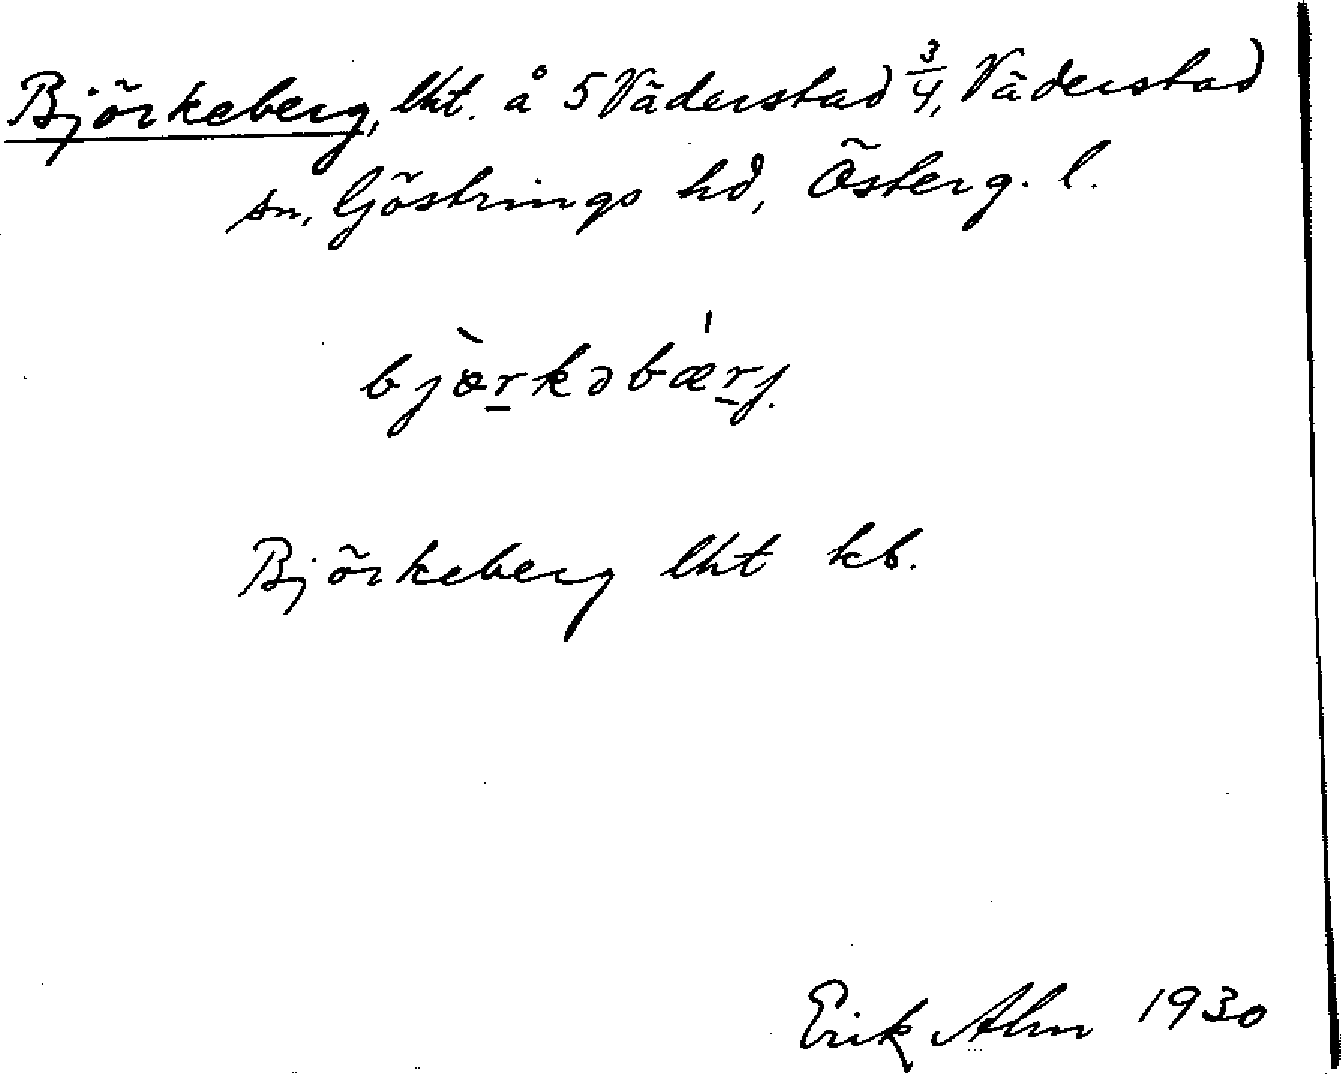 Björkeberg, lht. å 5 Väderstad 3/4, Väderstad
sn, Göstrings hd, Österg. l.
bjæ̀rkəbǽrj.
Björkeberg lht kb.
Erik Alm 1930